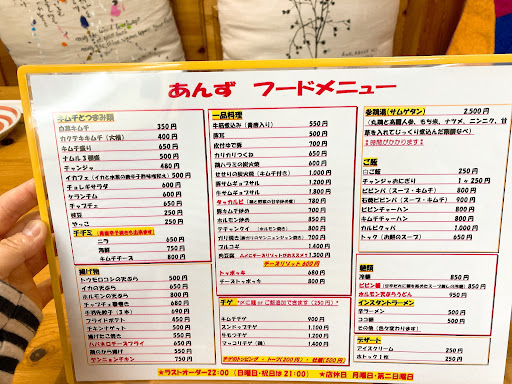 あんず フードメニュー
キムチとつまみ類
白菜キムチ 350円
カクテキキムチ（大根） 400円
キムチ盛り 650円
ナムル3種盛 500円
チャンジャ 480円
チョレギサラダ 600円
ケランチム 600円
チャプチェ 650円
枝豆 250円
やっこ 250円
チヂミ
ニラ 650円
海鮮 750円
キムチチーズ 800円
揚げ物
トウモロコシの天ぷら 500円
イカの天ぷら 650円
ホルモンの天ぷら
チャプチェ春巻き
フライドポテト
チキンナゲット
ハバネロチーズフライ
鶏のから揚げ 550円
ヤンニョンチキン 760円
一品料理
牛筋煮込み（青唐入り） 550円
豚耳 500円
皮付ゆで豚 700円
カリカリつくね 650円
鶏ハラミの炭火焼 600円
せせりの炭火焼（キムチ付き） 600円
豚サムギョプサル
牛サムギョプサル
タッカルビ
豚キムチ炒め 700円
ホルモン炒め 850円
テチャンクイ（ホルモン焼き） 800円
プルコギ
チーズリゾット 600円
トッポキ 680円
チーストッポキ 800円
チゲ
キムチチゲ
スンドゥブチゲ
牛モツチゲ
マッコリチゲ（鶏）
参鶏湯（サムゲタン） 2,500円
（丸鶏と高麗人参、もち米、ナツメ、ニンニク、甘
草を入れてじっくり煮込んだ薬膳なべ）
‡時間がかかります‡
ご飯
白ご飯 250円
チャンジャおにぎり 1ヶ 250円
ビビンバ（スープ・キムチ） 800円
石焼ビビンバ（スープ・キムチ） 900円
ビビンチャーハン 800円
キムチャーハン 800円
カルビクッパ 1,000円
トック（お餅のスープ） 650円
麺類
冷麺 850円
ビビン麺 850円
ホルモン天ぷらうどん 950円
インスタントラーメン
辛ラーメン 500円
ココ麺 500円
その他（色々変わります）
デザート
アイスクリーム 250円
ホットク1枚 250円
★ラストオーダー22:00（日曜日・祝日は21:00） ★店休日 月曜日・第二日曜日